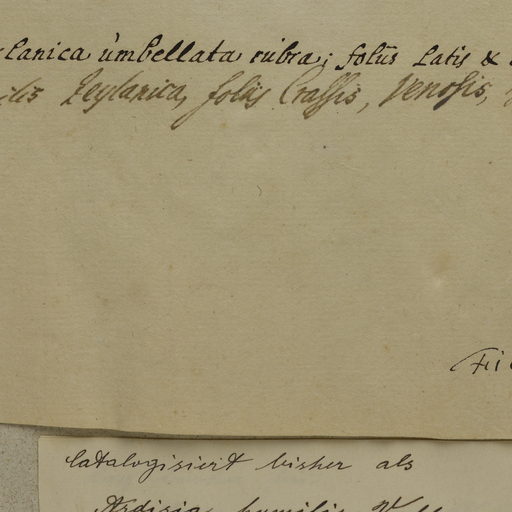 lanica umbellata rubra; foliis Latis &
ilis Zeylanica, foliis Crassis, Venosis,
catalogisiert bisher als
Ardisia humilis V